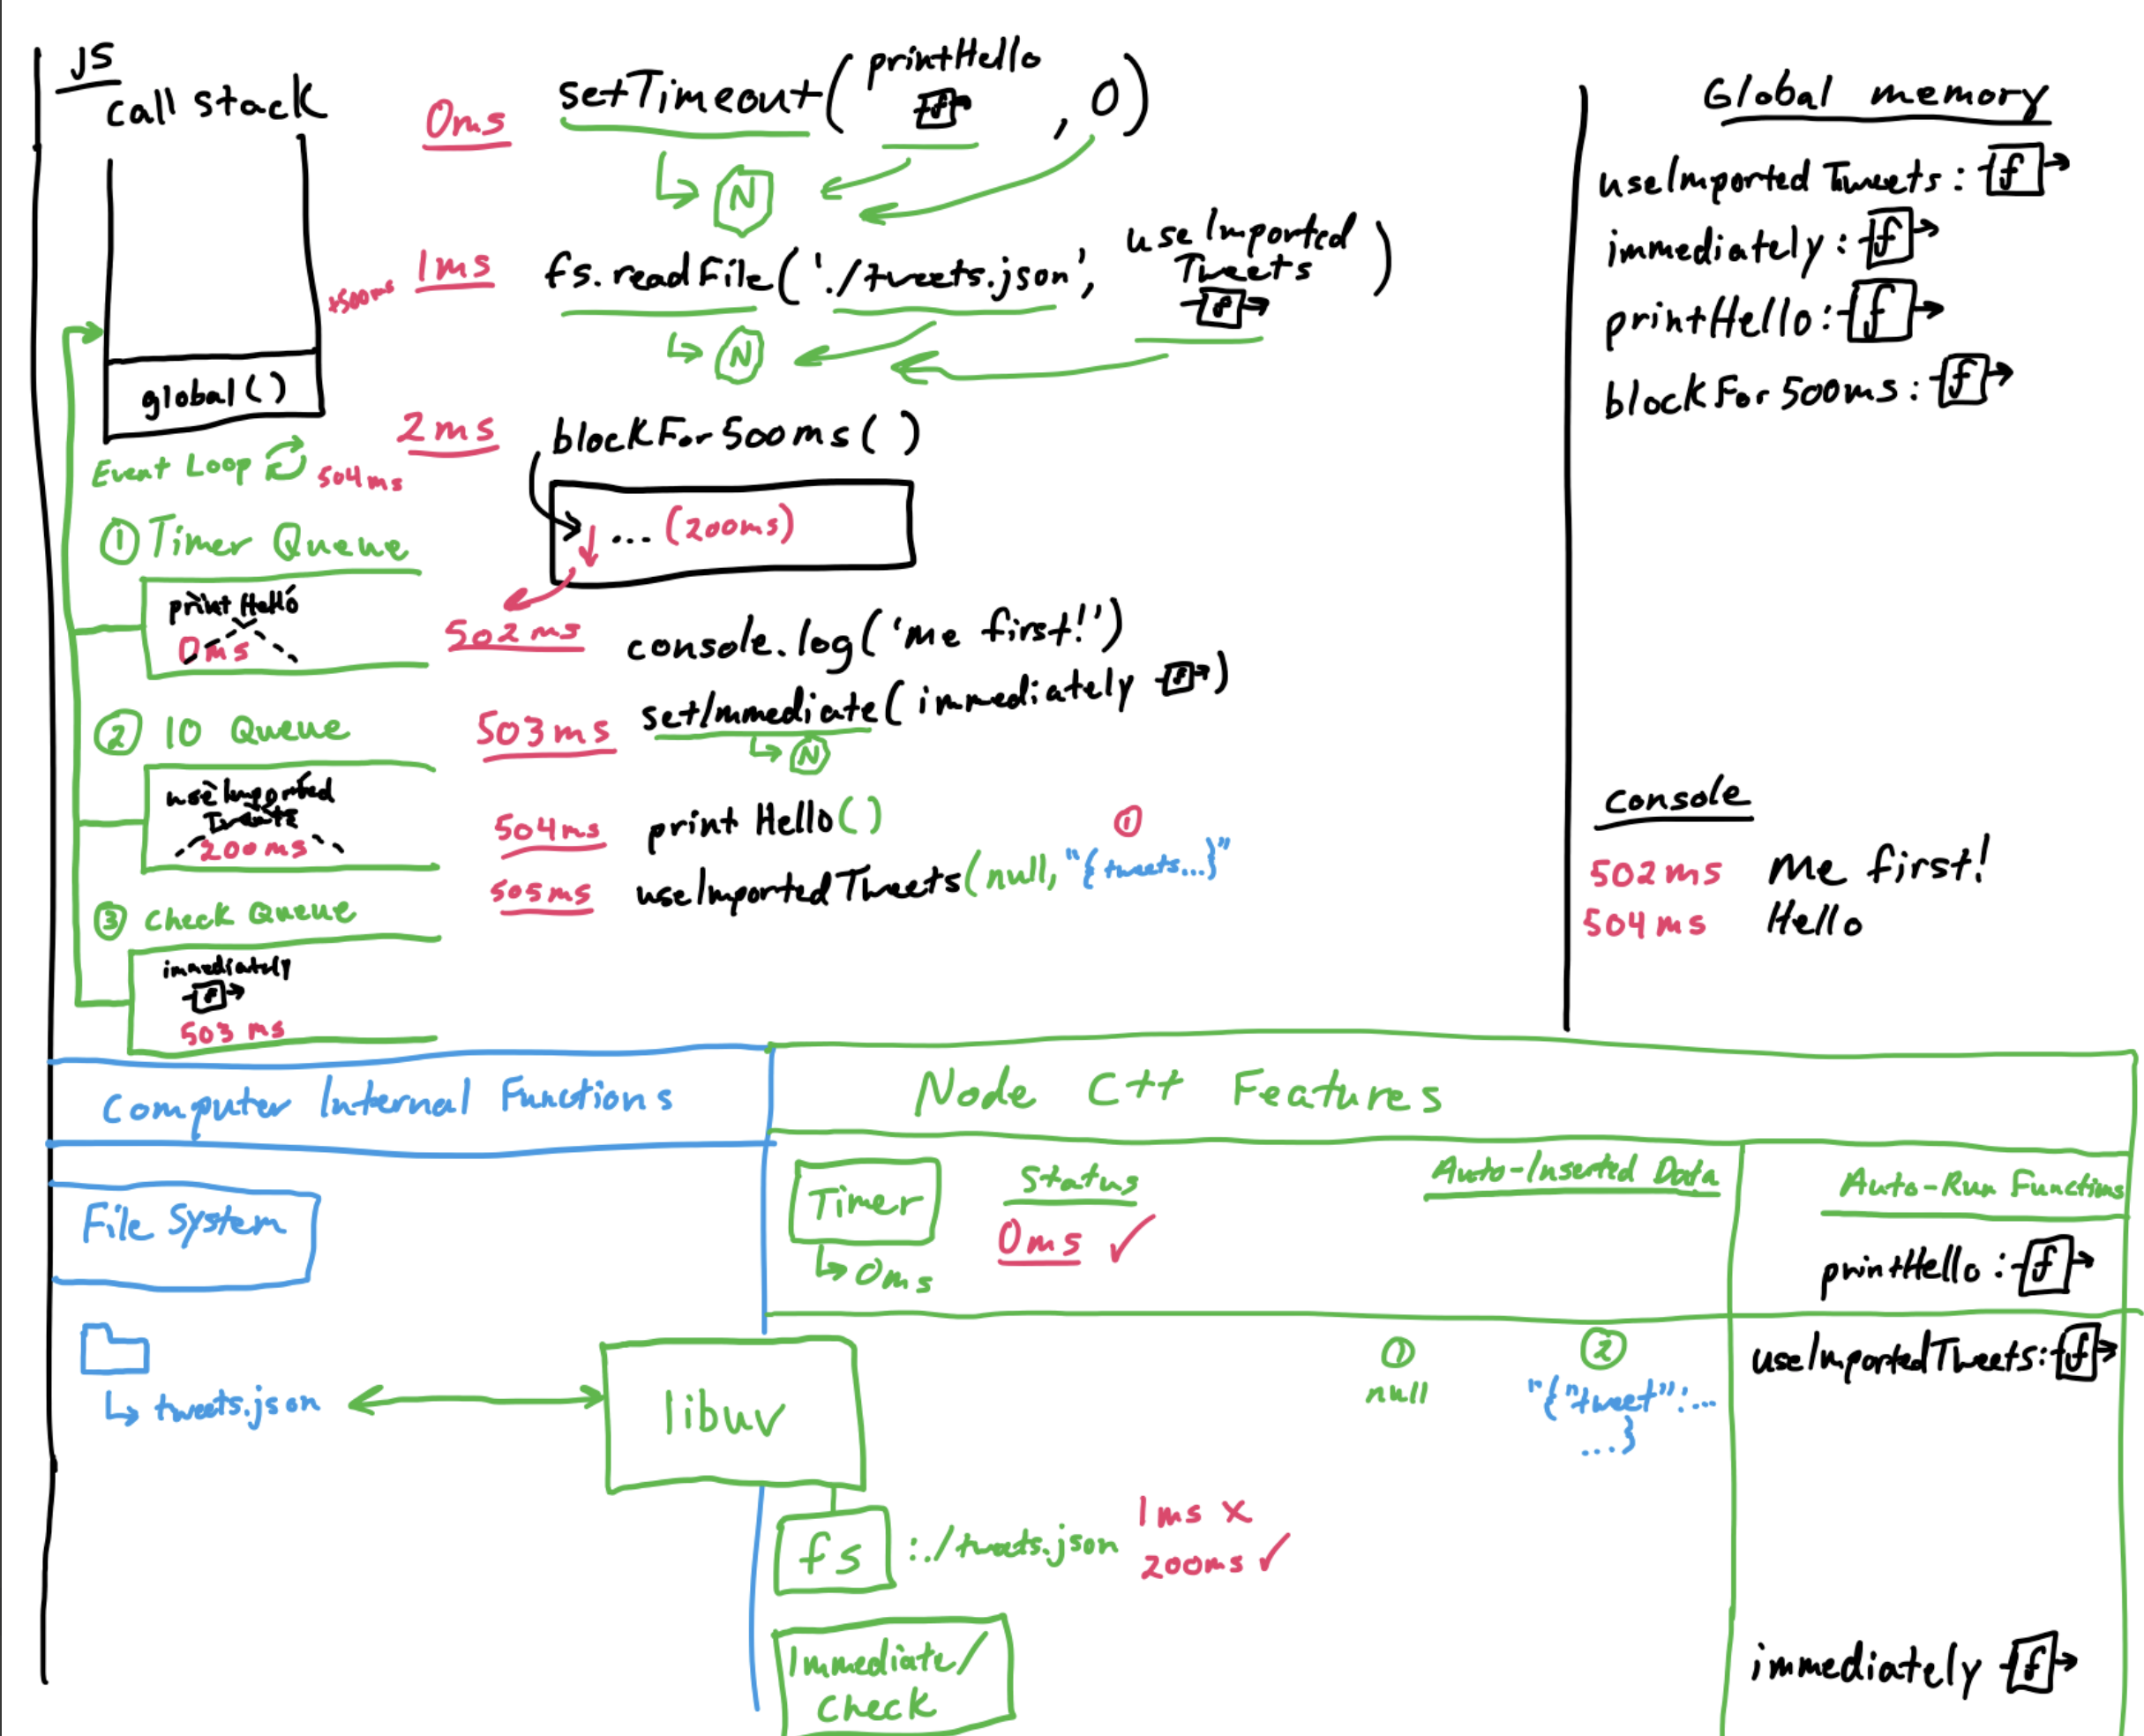 JS
call stack
global()
Event Loop 504ms
① Timer Queue
printHello
0ms
② IO Queue
useImported
Tweets
200ms
③ Check Queue
immediately
f
503 ms
0ms
setTimeout( printHello f , 0)
N
+500ms
1ms
fs.readFile('./tweets.json', useImported Tweets f )
N
2ms
blockFor500ms()
... (200ms)
502ms
console.log('me first!')
503ms
setImmediate( immediately f )
N
504ms
print Hello()
①
505ms
useImportedTweets(null, "{tweets...}"
Global memory
useImported Tweets: f
immediately: f
printHello: f
blockFor500ms: f
Console
502ms Me first!
504ms Hello
Computer Internal Functions
File System
tweets.json
Node C++ Features
Timer
0ms
Status
0ms ✓
Auto-Inserted Data
Auto-Run Functions
printHello: f
libuv
①
null
②
"{"tweet":...
...}
useImportedTweets: f
fs :./tweets.json
1ms x
200ms ✓
Immediate/
Check
immediately f